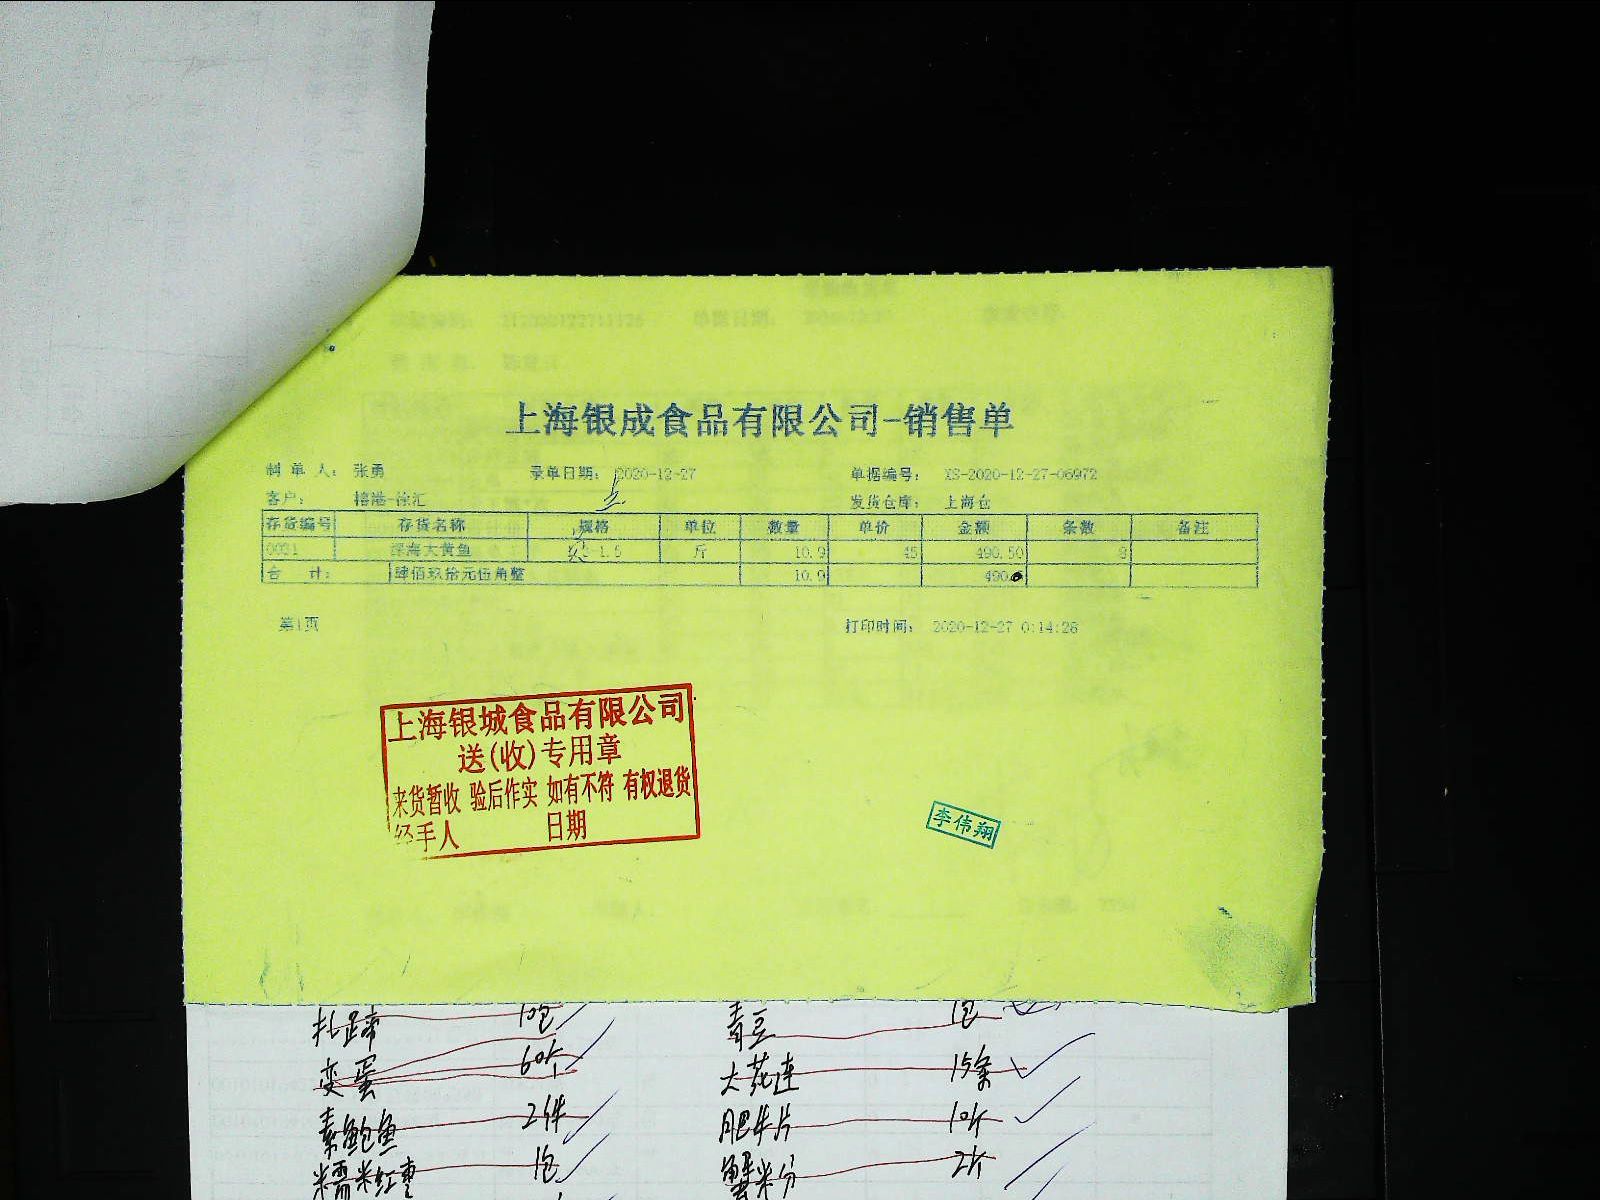 上海银成食品有限公司-销售单
制单人： 张勇 录单日期： 2020-12-27 单据编号： XS-2020-12-27-06972
客户： 禧港-徐汇 发货仓库： 上海仓
存货编号 存货名称 规格 单位 数量 单价 金额 条数 备注
0031 深海大黄鱼 -1.5 斤 10.9 45 490.50 8
合计： 肆佰玖拾元伍角整 10.9 490
第1页 打印时间： 2020-12-27 0:14:28
上海银城食品有限公司
送(收)专用章
来货暂收 验后作实 如有不符 有权退货
经手人 日期
李伟翔
扎蹄 10包 青豆 1包
变蛋 60个 大花连 15条
素鲍鱼 2件 肥牛片 10斤
糯米红枣 1包 蟹米分 2斤